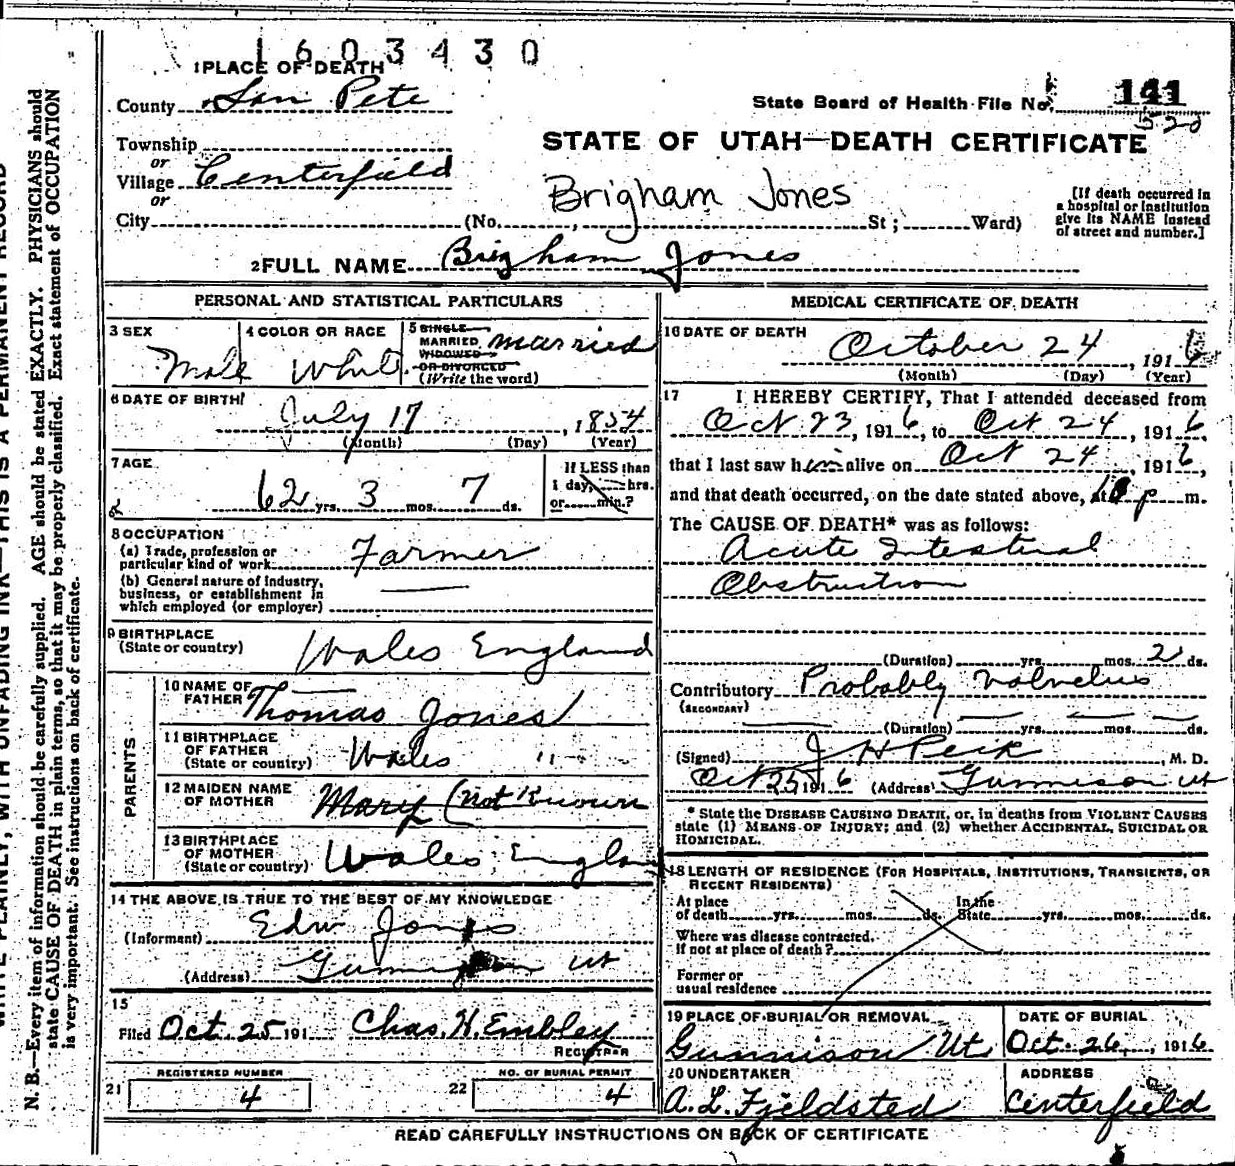 1603430
1 PLACE OF DEATH
County San Pete
State Board of Health File No. 141
520
Township
or
Village Centerfield
or
STATE OF UTAH—DEATH CERTIFICATE
Brigham Jones
City (No. , St; Ward)
[If death occurred in
a hospital or institution
give its NAME instead
of street and number.]
2 FULL NAME Brigham Jones
PERSONAL AND STATISTICAL PARTICULARS
3 SEX
Male
4 COLOR OR RACE
White
5 SINGLE
MARRIED
WIDOWED
OR DIVORCED
(Write the word)
married
6 DATE OF BIRTH
July 17, 1854
(Month) (Day) (Year)
7 AGE
62 yrs. 3 mos. 7 ds.
If LESS than
1 day, hrs.
or min.?
8 OCCUPATION
(a) Trade, profession or
particular kind of work Farmer
(b) General nature of industry,
business, or establishment in
which employed (or employer)
9 BIRTHPLACE
(State or country) Wales England
PARENTS
10 NAME OF
FATHER Thomas Jones
11 BIRTHPLACE
OF FATHER
(State or country) Wales "
12 MAIDEN NAME
OF MOTHER Mary (not Known
13 BIRTHPLACE
OF MOTHER
(State or country) Wales, England
14 THE ABOVE IS TRUE TO THE BEST OF MY KNOWLEDGE
(Informant) Edw Jones
(Address) Gunnison Ut
15
Filed Oct. 25 191 Chas. H. Embley
REGISTRAR
21 REGISTERED NUMBER
4
22 NO. OF BURIAL PERMIT
4
MEDICAL CERTIFICATE OF DEATH
16 DATE OF DEATH
October 24, 1916
(Month) (Day) (Year)
17 I HEREBY CERTIFY, That I attended deceased from
Oct 23, 1916, to Oct 24, 1916,
that I last saw him alive on Oct 24, 1916,
and that death occurred, on the date stated above, at p m.
The CAUSE OF DEATH* was as follows:
Acute Intestinal
Obstruction
(Duration) yrs. mos. 2 ds.
Contributory Probably Volvulus
(SECONDARY)
(Duration) yrs. mos. ds.
(Signed) J H Peik, M. D.
Oct 25 1916 (Address) Gunnison Ut
* State the DISEASE CAUSING DEATH, or, in deaths from VIOLENT CAUSES
state (1) MEANS OF INJURY; and (2) whether ACCIDENTAL, SUICIDAL OR
HOMICIDAL.
18 LENGTH OF RESIDENCE (FOR HOSPITALS, INSTITUTIONS, TRANSIENTS, OR
RECENT RESIDENTS)
At place
of death yrs. mos. ds.
In the
State yrs. mos. ds.
Where was disease contracted,
if not at place of death?
Former or
usual residence
19 PLACE OF BURIAL OR REMOVAL
Gunnison Ut.
DATE OF BURIAL
Oct. 26, 1916
20 UNDERTAKER
A. L. Fjeldsted
ADDRESS
Centerfield
READ CAREFULLY INSTRUCTIONS ON BACK OF CERTIFICATE
WRITE PLAINLY, WITH UNFADING INK—THIS IS A PERMANENT RECORD
N. B.—Every item of information should be carefully supplied. AGE should be stated EXACTLY. PHYSICIANS should
state CAUSE OF DEATH in plain terms, so that it may be properly classified. Exact statement of OCCUPATION
is very important. See instructions on back of certificate.